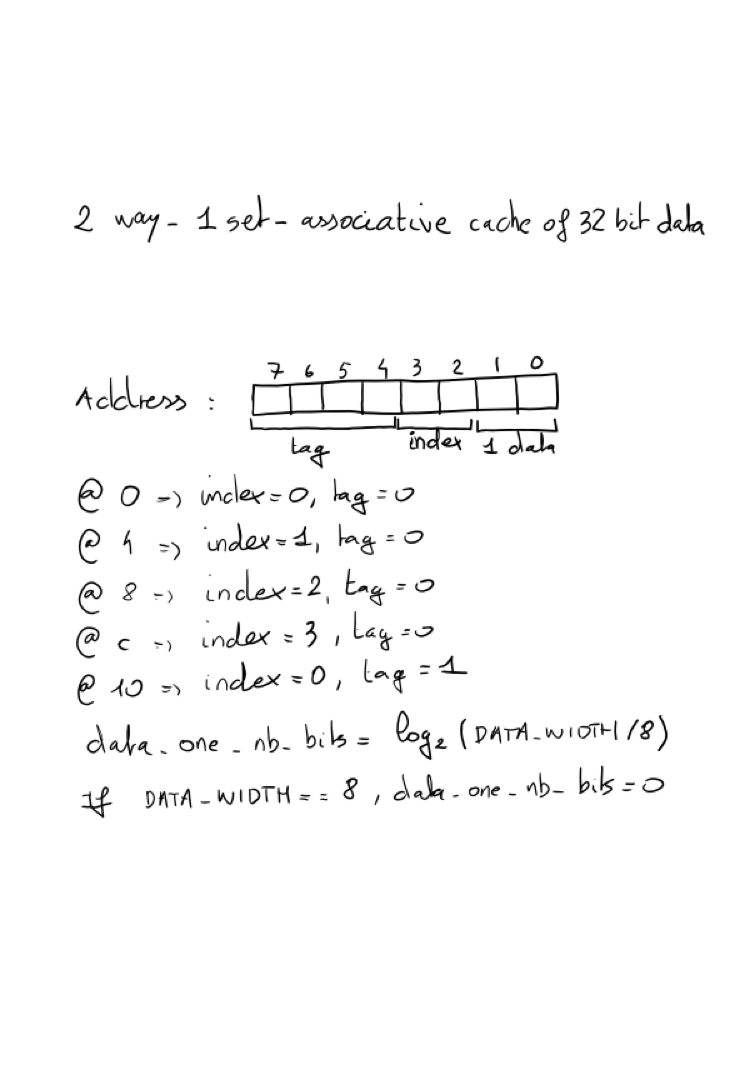 2 way - 1 set - associative cache of 32 bit data
7 6 5 4 3 2 1 0
Address :
tag index 1 data
@ 0 => index=0, tag=0
@ 4 => index=1, tag=0
@ 8 => index=2, tag=0
@ c => index=3, tag=0
@ 10 => index=0, tag=1
data_one_nb_bits = log₂ (DATA_WIDTH/8)
If DATA_WIDTH == 8, data_one_nb_bits=0